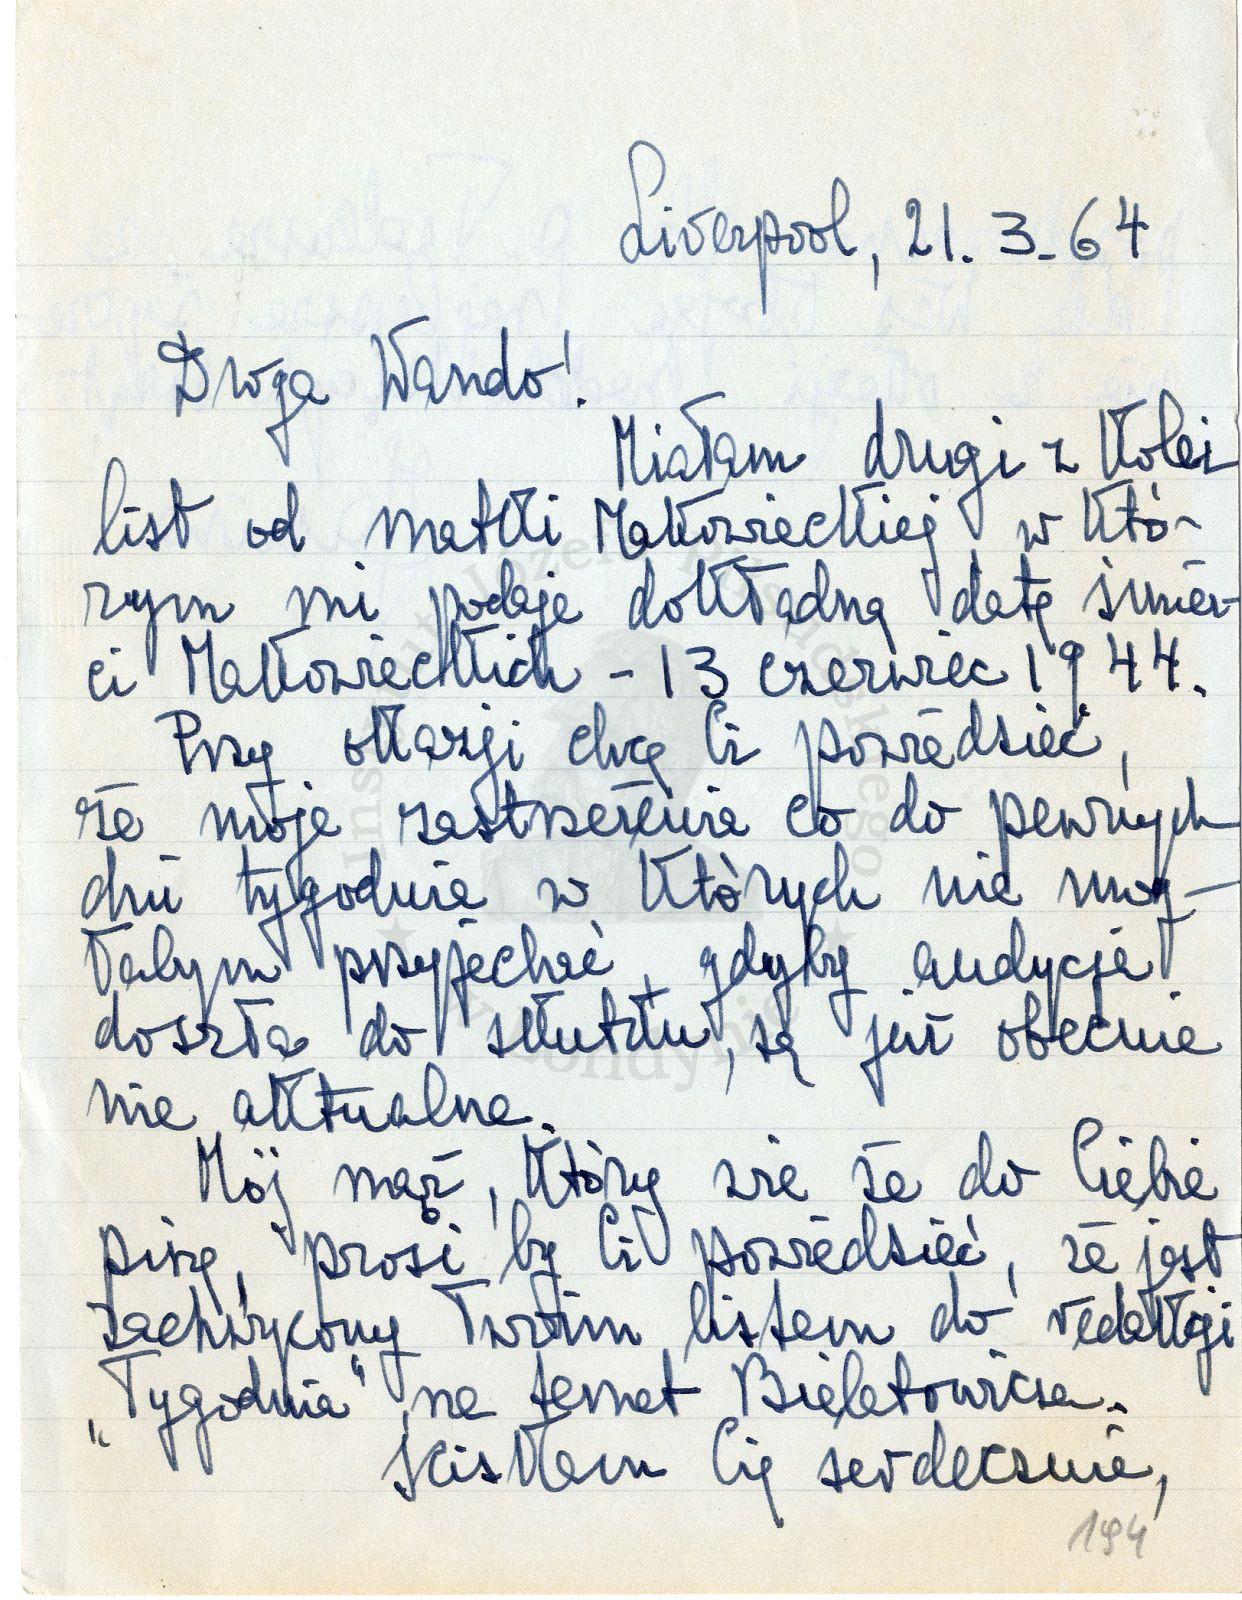 Liverpool, 21. 3. 64
Droga Wando!
Miałam drugi z kolei
list od matki Makowieckiej w któ-
rym mi podaje dokładną datę śmier-
ci Makowieckich - 13 czerwiec 1944.
Przy okazji chcę Ci powiedzieć,
że moje zastrzeżenia co do pewnych
dni tygodnia w których nie mog-
łabym przyjechać, gdyby audycja
doszła do skutku, są już obecnie
nie aktualne.
Mój mąż, który wie że do Ciebie
piszę, prosi by Ci powiedzieć, że jest
zachwycony Twoim listem do redakcji
„Tygodnia" na temat Bielatowicza.
Ściskam Cię serdecznie,
194
Instytut Józefa Piłsudskiego
w Londynie